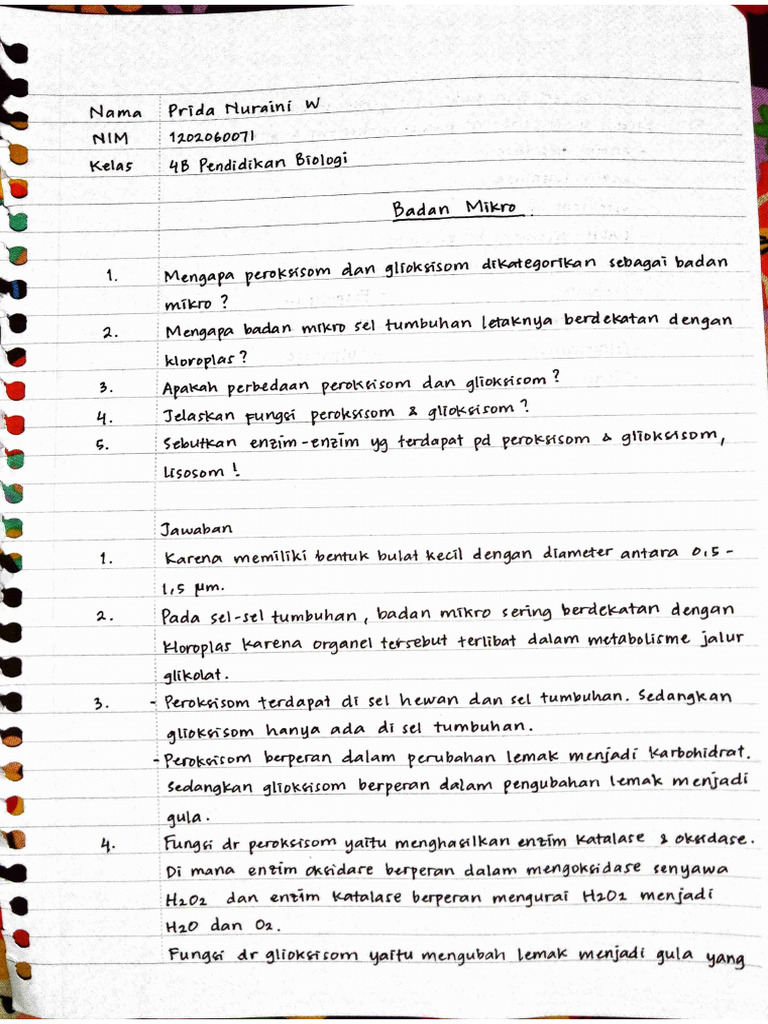 Nama Prida Nuraini W
NIM 1202060071
Kelas 4B Pendidikan Biologi
Badan Mikro.
1. Mengapa peroksisom dan glioksisom dikategorikan sebagai badan
mikro?
2. Mengapa badan mikro sel tumbuhan letaknya berdekatan dengan
kloroplas?
3. Apakah perbedaan peroksisom dan glioksisom?
4. Jelaskan fungsi peroksisom & glioksisom?
5. Sebutkan enzim-enzim yg terdapat pd peroksisom & glioksisom,
lisosom!
Jawaban
1. Karena memiliki bentuk bulat kecil dengan diameter antara 0,5-
1,5 µm.
2. Pada sel-sel tumbuhan, badan mikro sering berdekatan dengan
kloroplas karena organel tersebut terlibat dalam metabolisme jalur
glikolat.
3. - Peroksisom terdapat di sel hewan dan sel tumbuhan. Sedangkan
glioksisom hanya ada di sel tumbuhan.
- Peroksisom berperan dalam perubahan lemak menjadi karbohidrat.
Sedangkan glioksisom berperan dalam pengubahan lemak menjadi
gula.
4. Fungsi dr peroksisom yaitu menghasilkan enzim katalase & oksidase.
Di mana enzim oksidase berperan dalam mengoksidase senyawa
H2O2 dan enzim katalase berperan mengurai H2O2 menjadi
H2O dan O2.
Fungsi dr glioksisom yaitu mengubah lemak menjadi gula yang